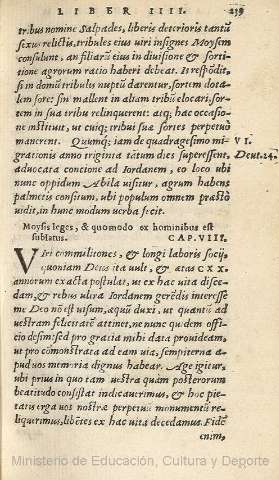 LIBER IIII. 239
tribus nomine Salpades, liberis deterioris tantũ
sexus relictis, tribules eius viri insignes Moysem
consulunt, an filiarũ eius in divisione & sorti-
tione agrorum ratio haberi debeat. It respõdit,
si in domũ tribulis nuptũ darentur, sortem dota-
lem fore: sin mallent in aliam tribũ elocari, sor-
tem in sua tribu relinquerent: atq; hac occasio-
ne instituit, ut cuiq; tribui sua sortes perpetuò
manerent. Quumq; iam de quadragesimo mi- VI.
grationis anno triginta tātum dies superessent, Deut.24.
advocata concione ad Iordanem, eo loco ubi
nunc oppidum Abila visitur, agrum habens
palmetis consitum, ubi populum omnem præsto
vidit, in hunc modum verba fecit.
Moysis leges, & quomodo ex hominibus est
sublatus. CAP. VIII.
Viri commilitones, & longi laboris socij,
quoniam Deus ita vult, & ætas CXX.
annorum exacta postulat, ut ex hac vita disce-
dam, & rebus ultra Iordanem gerēdis interesse
me Deo nõ est visum, æquũ duxi, ut quantũ ad
vestram felicitatē attinet, ne nunc quidem offi-
cio desim: sed pro gratia mihi data provideam,
ut pro commonstrata ad eam via, sempiterna a-
pud vos memoria dignus habear. Age igitur,
ubi prius in quo tam vestra quàm posterorum
beatitudo consistat indicaverimus, & hoc pie-
tatis erga vos nostræ perpetuũ monumentũ re-
liquerimus, libẽtes ex hac vita decedamus. Fidē
enim,
Ministerio de Educación, Cultura y Deporte